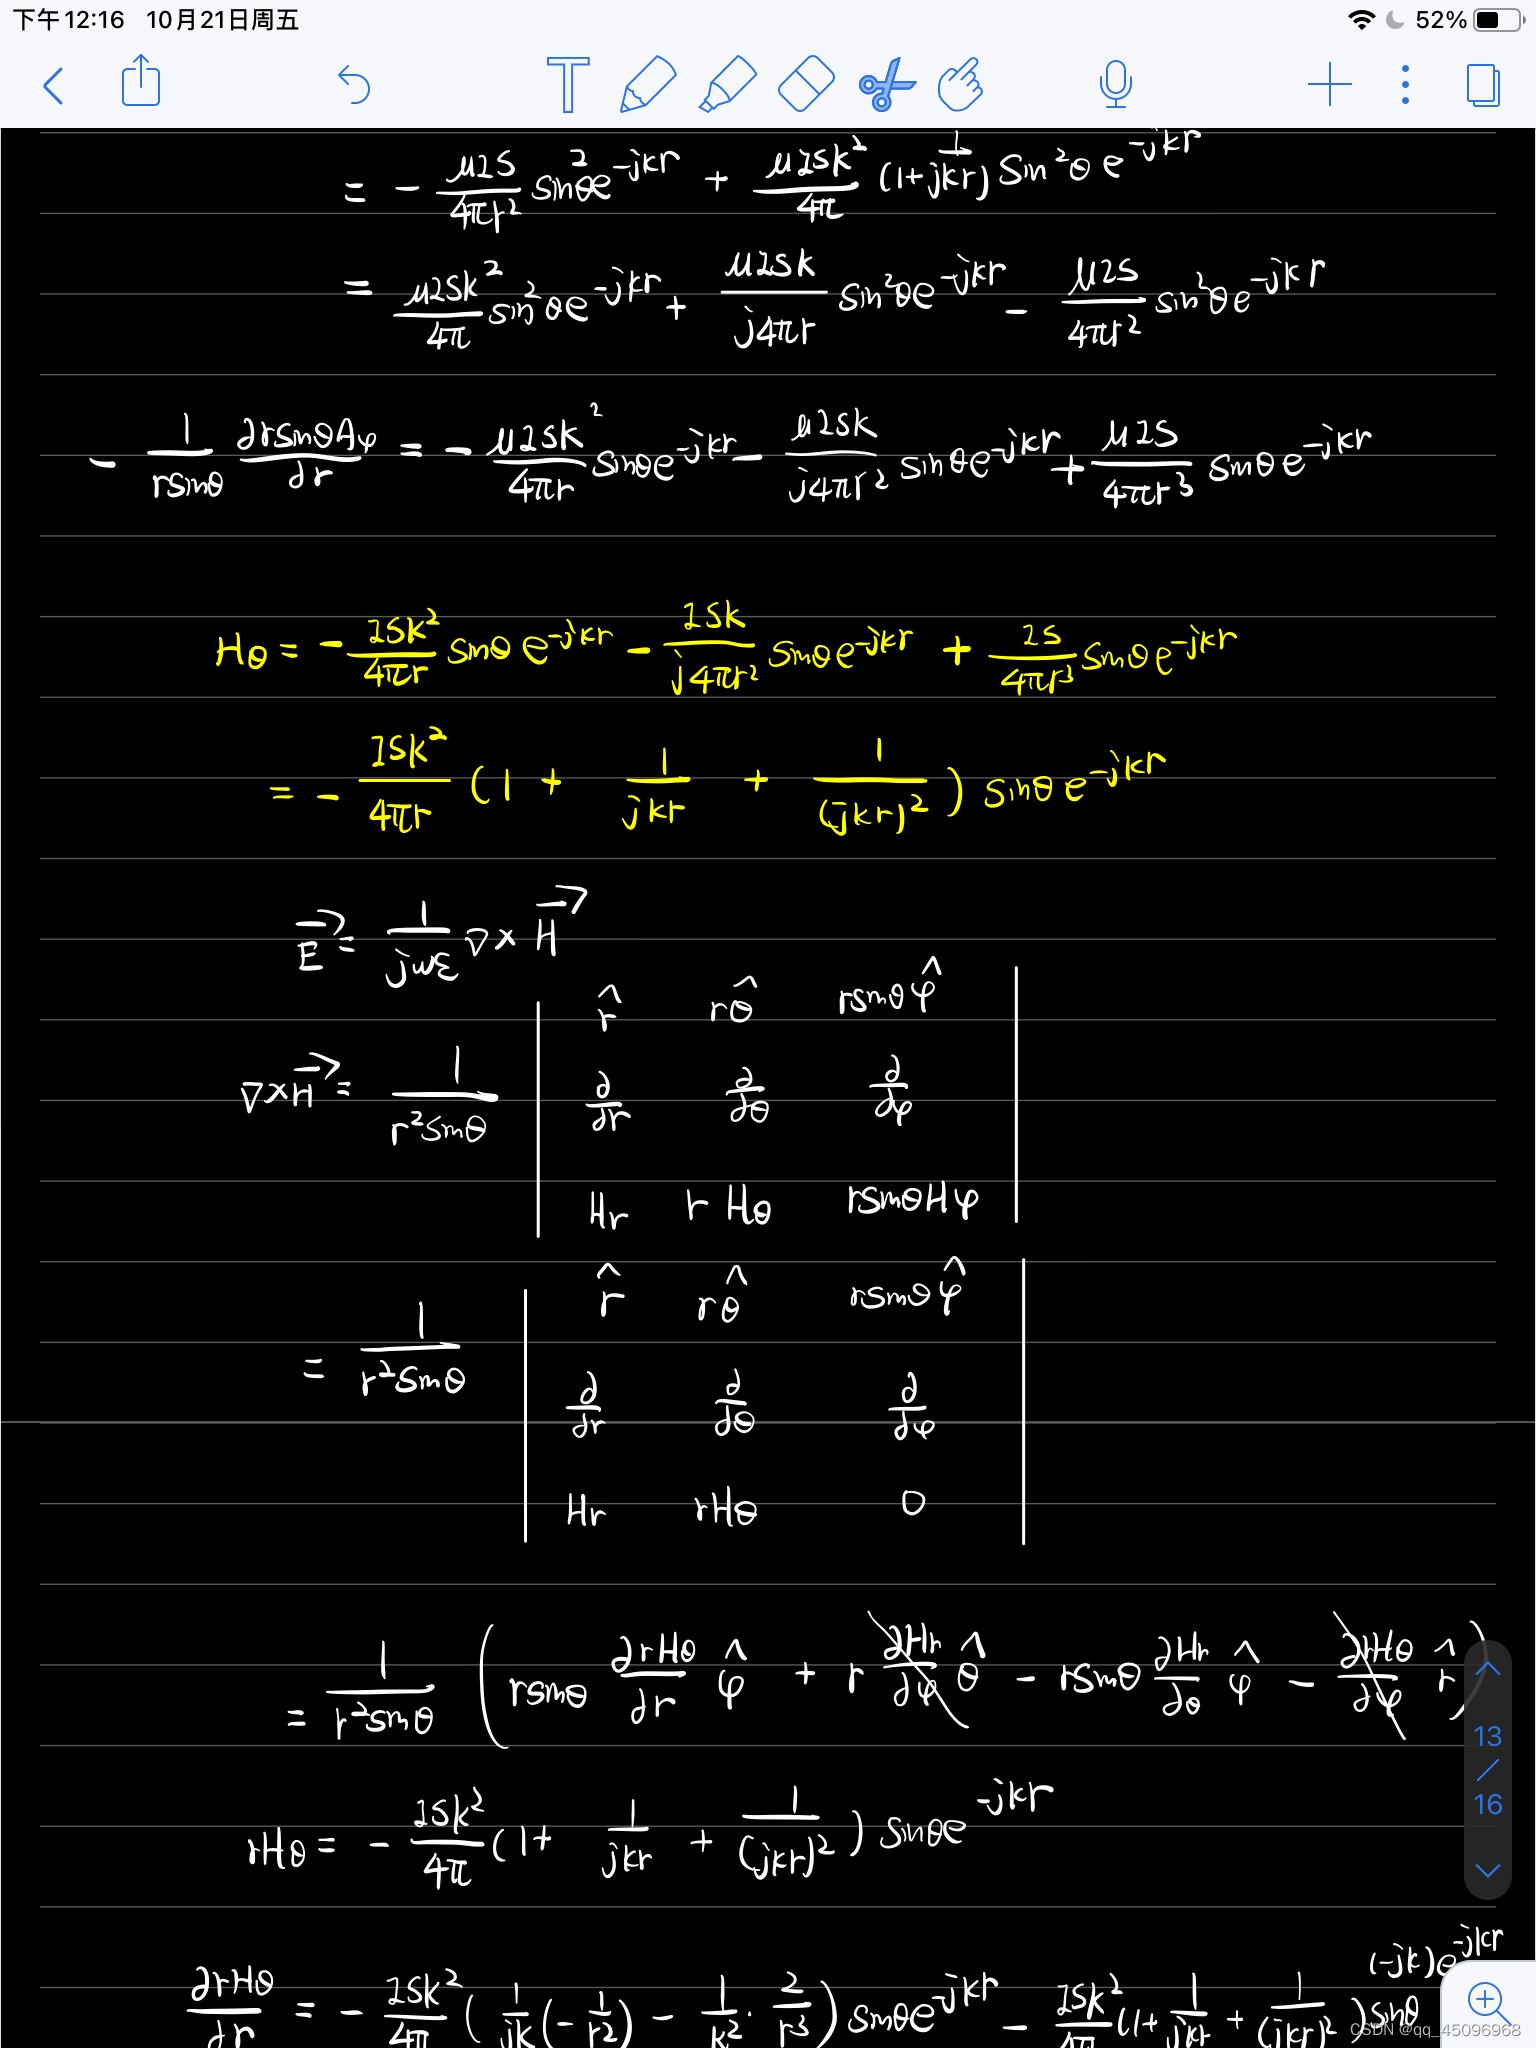 下午12:16 10月21日周五 52%
= - μIS/4πr² sin²θe^-jkr + μISk²/4π (1+1/jkr) sin²θ e^-jkr
= μISk²/4π sin²θe^-jkr + μISk/j4πr sin²θe^-jkr - μIS/4πr² sin²θe^-jkr
- 1/rsinθ ∂rsinθAφ/∂r = - μISk²/4πr sinθe^-jkr - μISk/j4πr² sinθe^-jkr + μIS/4πr³ sinθe^-jkr
Hθ = - ISk²/4πr sinθ e^-jkr - ISk/j4πr² sinθe^-jkr + IS/4πr³ sinθe^-jkr
= - ISk²/4πr (1 + 1/jkr + 1/(jkr)²) sinθe^-jkr
E⃗ = 1/jωε ∇×H⃗
∇×H⃗ = 1/r²sinθ | r̂ rθ̂ rsinθφ̂
∂/∂r ∂/∂θ ∂/∂φ
Hr rHθ rsinθHφ |
= 1/r²sinθ | r̂ rθ̂ rsinθφ̂
∂/∂r ∂/∂θ ∂/∂φ
Hr rHθ 0 |
= 1/r²sinθ (rsinθ ∂rHθ/∂r φ̂ + r ∂Hr/∂φ θ̂ - rsinθ ∂Hr/∂θ φ̂ - ∂rHθ/∂φ r̂)
13
/
16
rHθ = - ISk²/4π (1+ 1/jkr + 1/(jkr)²) sinθe^-jkr
∂rHθ/∂r = - ISk²/4π (1/jk(-1/r²) - 1/k² · 2/r³) sinθe^-jkr - ISk²/4π (1+1/jkr + 1/(jkr)²) sinθ (-jk)e^-jkr
CSDN @qq_45096968